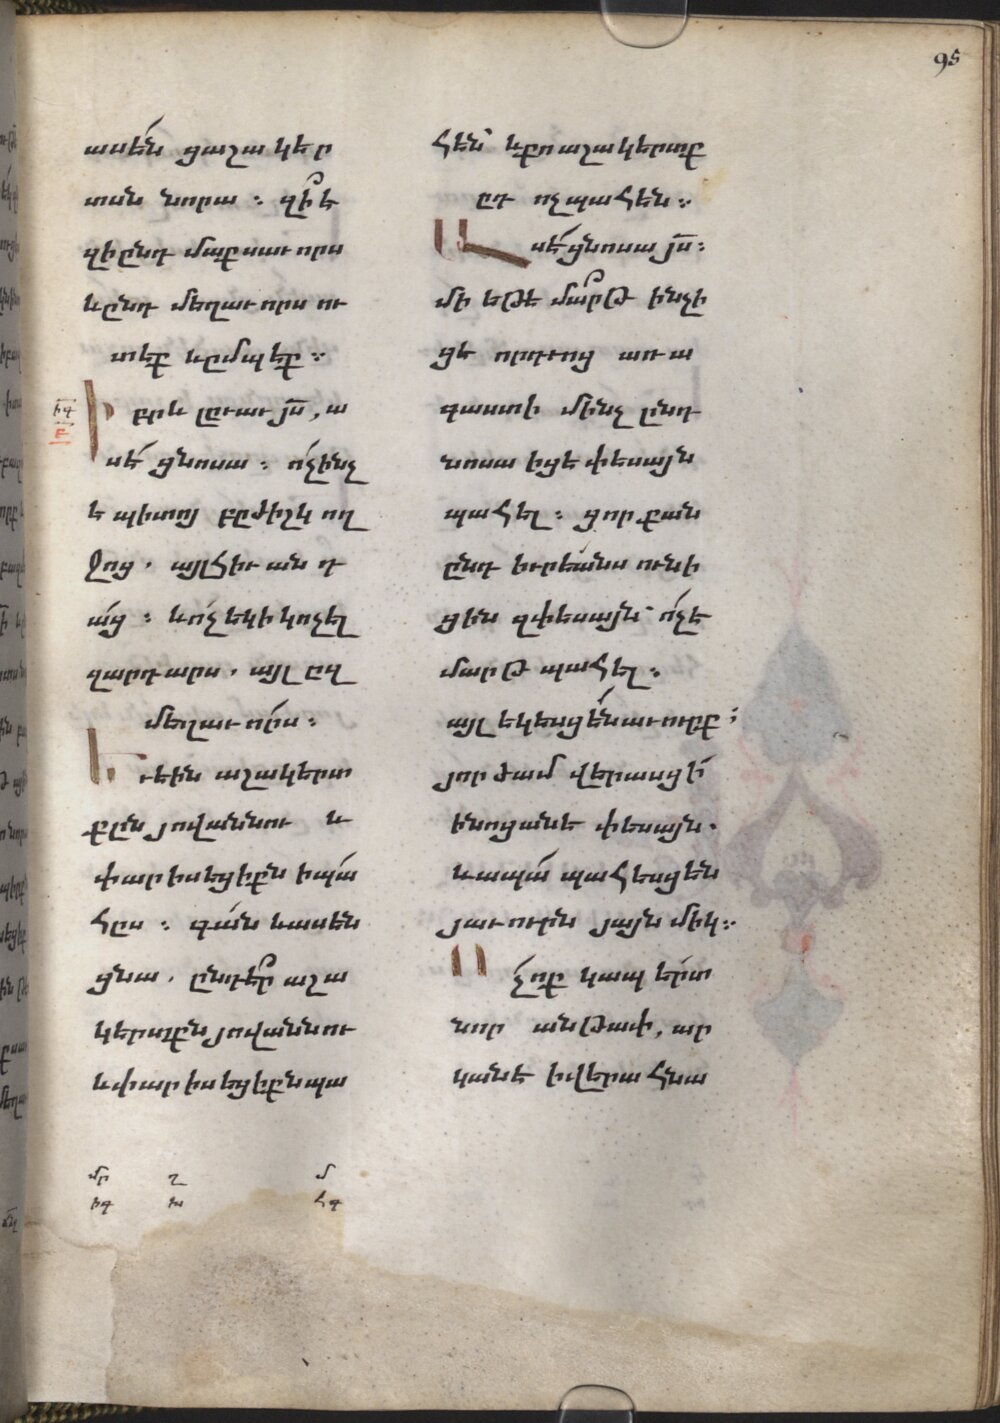 95
ասե՛ն ցաշակեր
տսն նորա : զի՞ է
զի ընդ մաքսաւորս
և ընդ մեղաւորս ու
տեք և ըմպէք :
իգ
բ
Իբրև լըւաւ յս̄, ա
սէ՛ ցնոսա : ո՛չինչ
է պիտոյ բըժիշկ ող
ջոց . այլ հիւանդ
ա՛ց : և ո՛չ եկի կոչել
զարդարս . այլ ըզ
մեղաւո՛րս :
Եւ էին աշակերտ
քըն յովաննու և
փարիսեցիքն ի պա՛
հըս : գա՛ն և ասեն
ցնա . ընդէ՞ր աշա
կերտքն յովաննու
և փարիսեցիքն պա
հեն՝ և քո աշակերտք
ըդ ոչ պահեն :
Ասէ՛ ցնոսա յս̄ :
մի եթէ մա՞րթ ինչի
ցե որդւոց առա
գաստի մինչ ընդ
նոսա իցէ փեսայն
պահել : ցորքան
ընդ իւրեանս ունի
ցին զփեսայն՝ ո՛չ է
մարթ պահել :
այլ եկեսցե՛ն աւուրք ;
յորժամ վերասցի՛
ի նոցանէ փեսայն .
և ապա՛ պահեսցեն
յաւուրն յայնմիկ :
Ո՛չ ոք կապերտ
նոր անթափ, ար
կանէ ի վերա հնա
մր ղ մ
իգ խ հգ